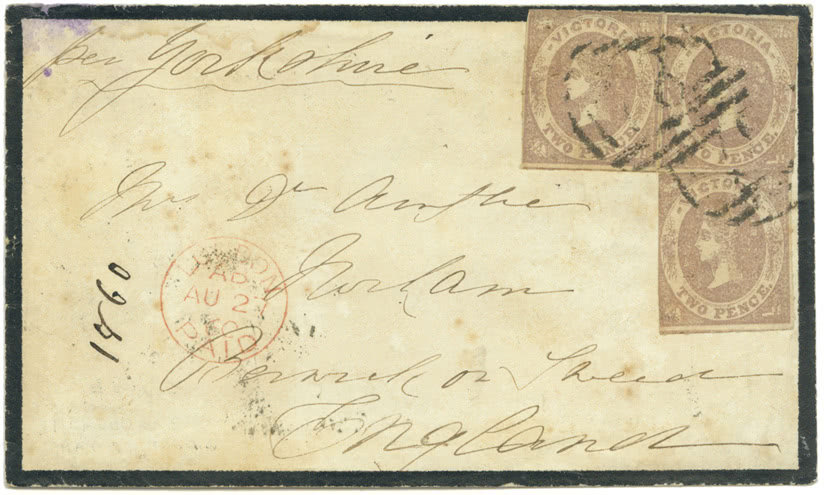 per Yorkshire
VICTORIA
TWO PENCE.
VICTORIA
TWO PENCE.
VICTORIA
TWO PENCE.
Mrs Dr
Norham
Berwick on Tweed
England
1860
LONDON
AU 2
60
PAID